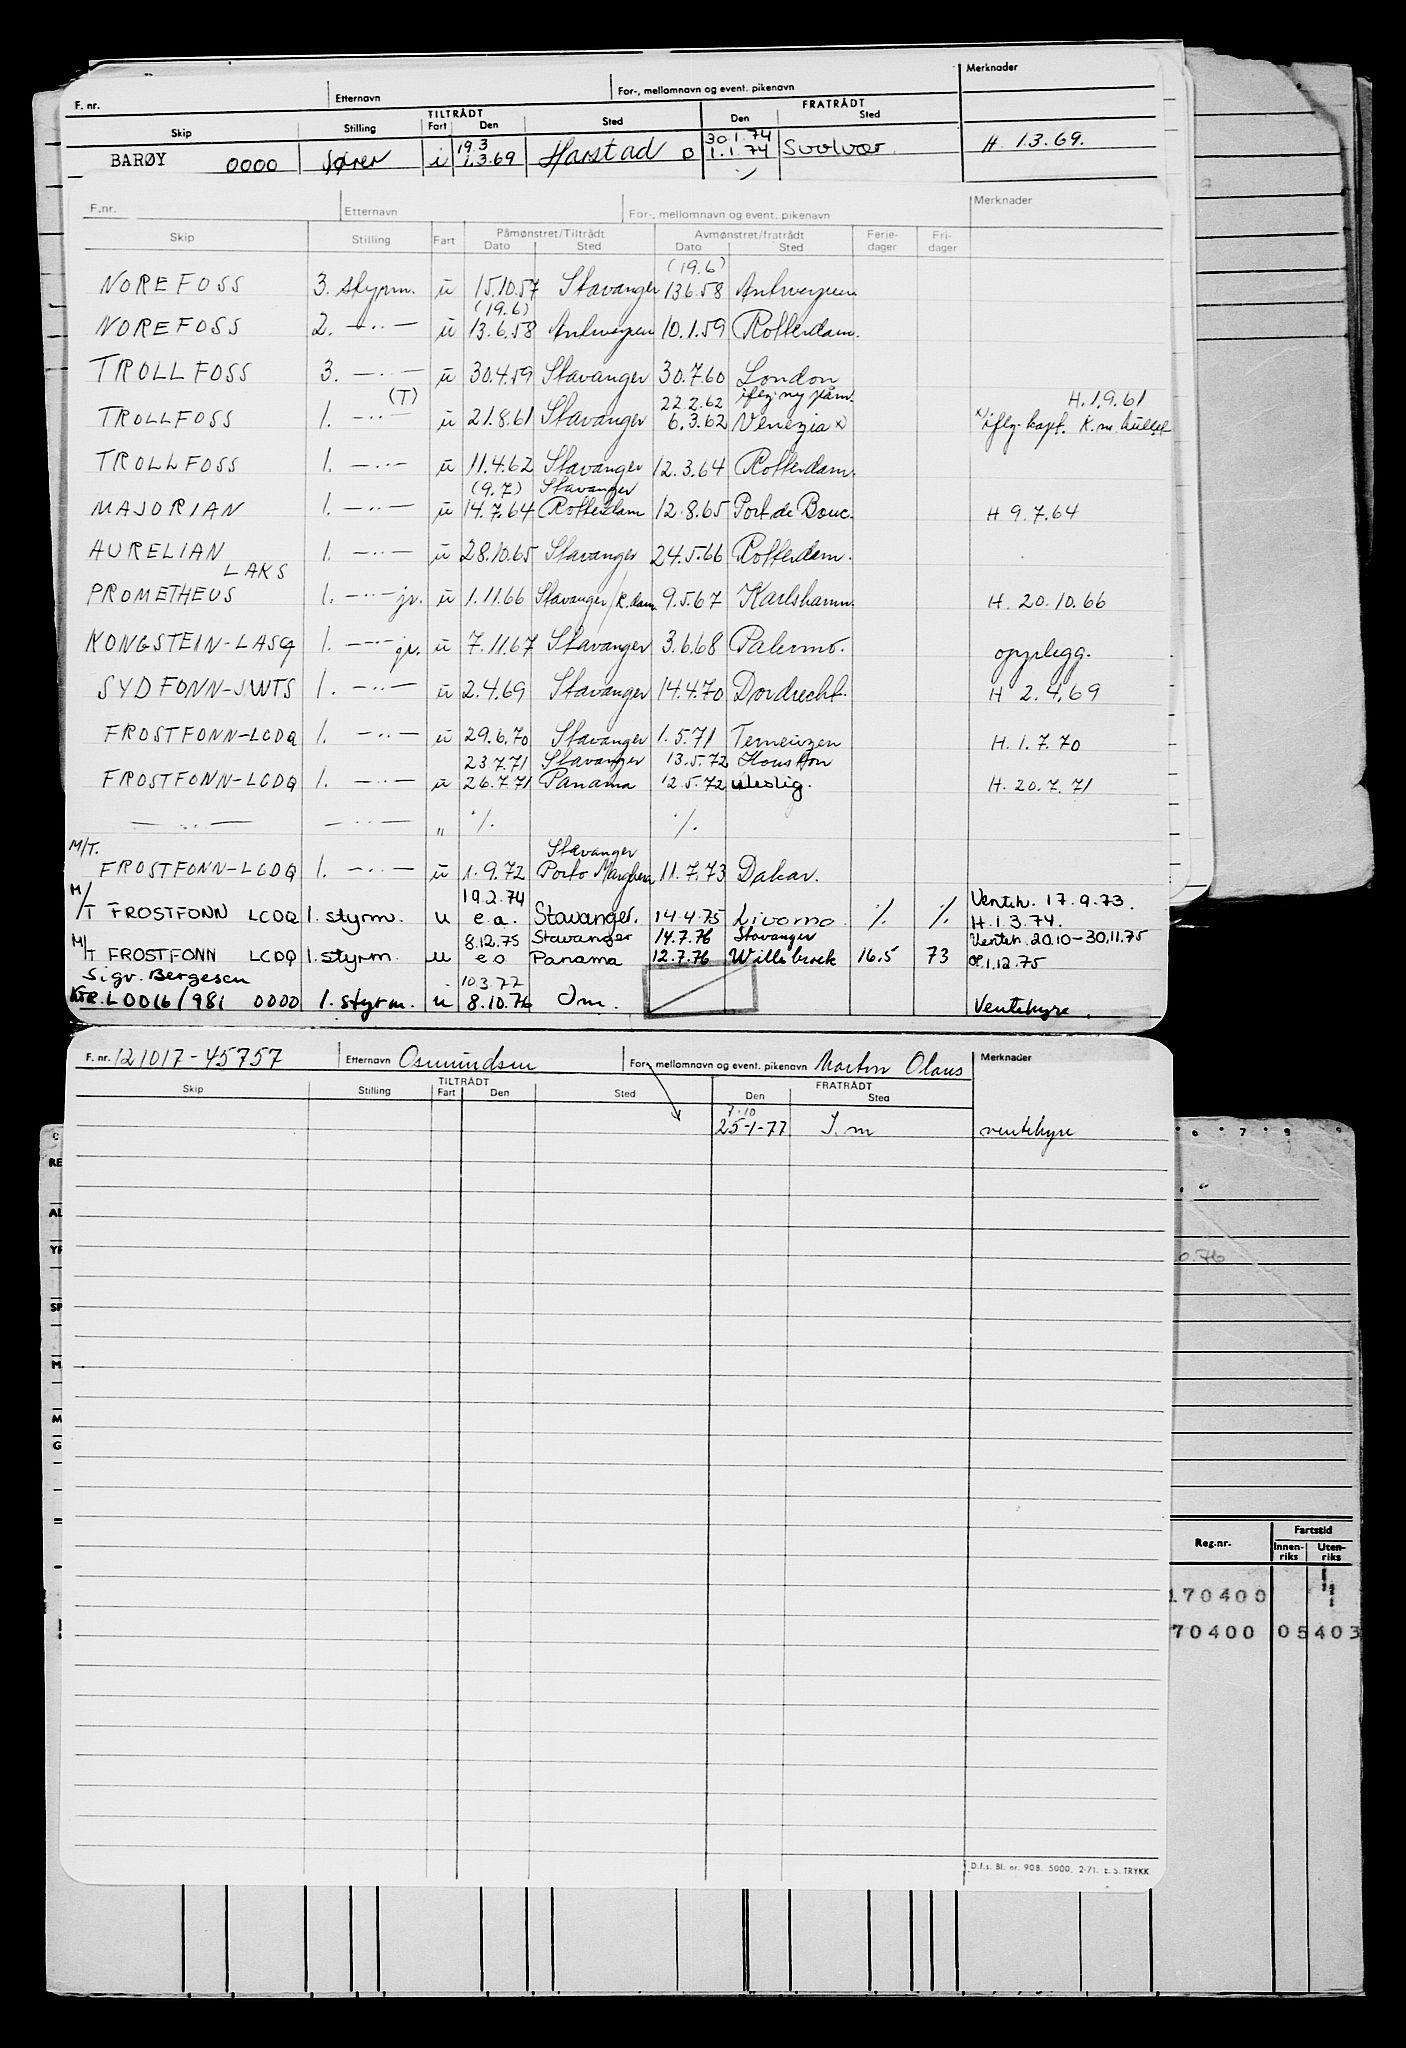 F. nr. Etternavn For-, mellomnavn og event. pikenavn Merknader
TILTRÅDT FRATRÅDT
Skip Stilling Fart Den Sted Den Sted
19.3 30.1.74
BARØY 0000 fører i 1.3.69 Harstad D 1.1.74 Svolvær H. 1.3.69.
F.nr. Etternavn For-, mellomnavn og event. pikenavn Merknader
Påmønstret/Tiltrådt Avmønstret/fratrådt Ferie- Fri-
Skip Stilling Fart Dato Sted Dato Sted dager dager
(19.6)
NOREFOSS 3. styrm. u 15.10.57 Stavanger 13.6.58 Antwerpen
(19.6)
NOREFOSS 2. —··— u 13.6.58 Antwerpen 10.1.59 Rotterdam.
TROLLFOSS 3. —··— u 30.4.59 Stavanger 30.7.60 London
(T) 22.2.62 iflg. ny påm. H. 1.9.61
TROLLFOSS 1. —··— u 21.8.61 Stavanger 6.3.62 Venezia x) x) iflg. kapt. K.m.
TROLLFOSS 1. —··— u 11.4.62 Stavanger 12.3.64 Rotterdam.
(9.7) Stavanger
MAJORIAN 1. —··— u 14.7.64 Rotterdam 12.8.65 Port de Bouc. H 9.7.64
AURELIAN 1. —··— u 28.10.65 Stavanger 24.5.66 Rotterdam.
LAKS
PROMETHEUS 1. —··— jr. u 1.11.66 Stavanger/R.dam 9.5.67 Karlshamn. H. 20.10.66
KONGSTEIN-LASQ 1. —··— jr. u 7.11.67 Stavanger 3.6.68 Palermo. opplegg.
SYDFONN-JWTS 1. —··— u 2.4.69 Stavanger 14.4.70 Dordrecht. H 2.4.69
FROSTFONN-LCDQ 1. —··— u 29.6.70 Stavanger 1.5.71 Terneuzen H. 1.7.70
23.7.71 Stavanger 13.5.72 Houston
FROSTFONN-LCDQ 1. —··— u 26.7.71 Panama 12.5.72 uleslig. H. 20.7.71
—··— —··— " ·/. ·/.
M/T. Stavanger
FROSTFONN-LCDQ 1. —··— u 1.9.72 Porto Marghera 11.7.73 Dakar.
19.2.74 Venteh. 17.9.73.
M/T FROSTFONN LCDQ 1. styrm. u e.a. Stavanger. 14.4.75 Livorno ·/. ·/. H.1.3.74.
8.12.75 Stavanger 14.7.76 Stavanger Venteh. 20.10-30.11.75
M/T FROSTFONN LCDQ 1. styrm. u e.o Panama 12.7.76 Willebroek 16.5 73 OP.1.12.75
Sigv. Bergesen 10.3.77
KTR. L0016/981 0000 1. styrm. u 8.10.76 Om. Ventehyre.
F. nr. 121017-45757 Etternavn Osmundsen For-, mellomnavn og event. pikenavn Morton Olaus Merknader
TILTRÅDT FRATRÅDT
Skip Stilling Fart Den Sted Den Sted
7.10
25-1-77 I.m ventehyre
0.76
Reg.nr. Fartstid
Innen-riks Uten-riks
170400
70400 05403
D.f.s. Bl. nr. 90B. 5000. 2-71. E. S. TRYKK